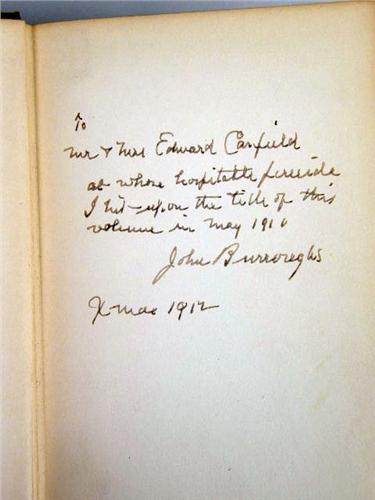 To
Mr & Mrs Edward Canfield
at whose hospitable fireside
I hit upon the title of this
volume in May 1910
John Burroughs
X-mas 1912